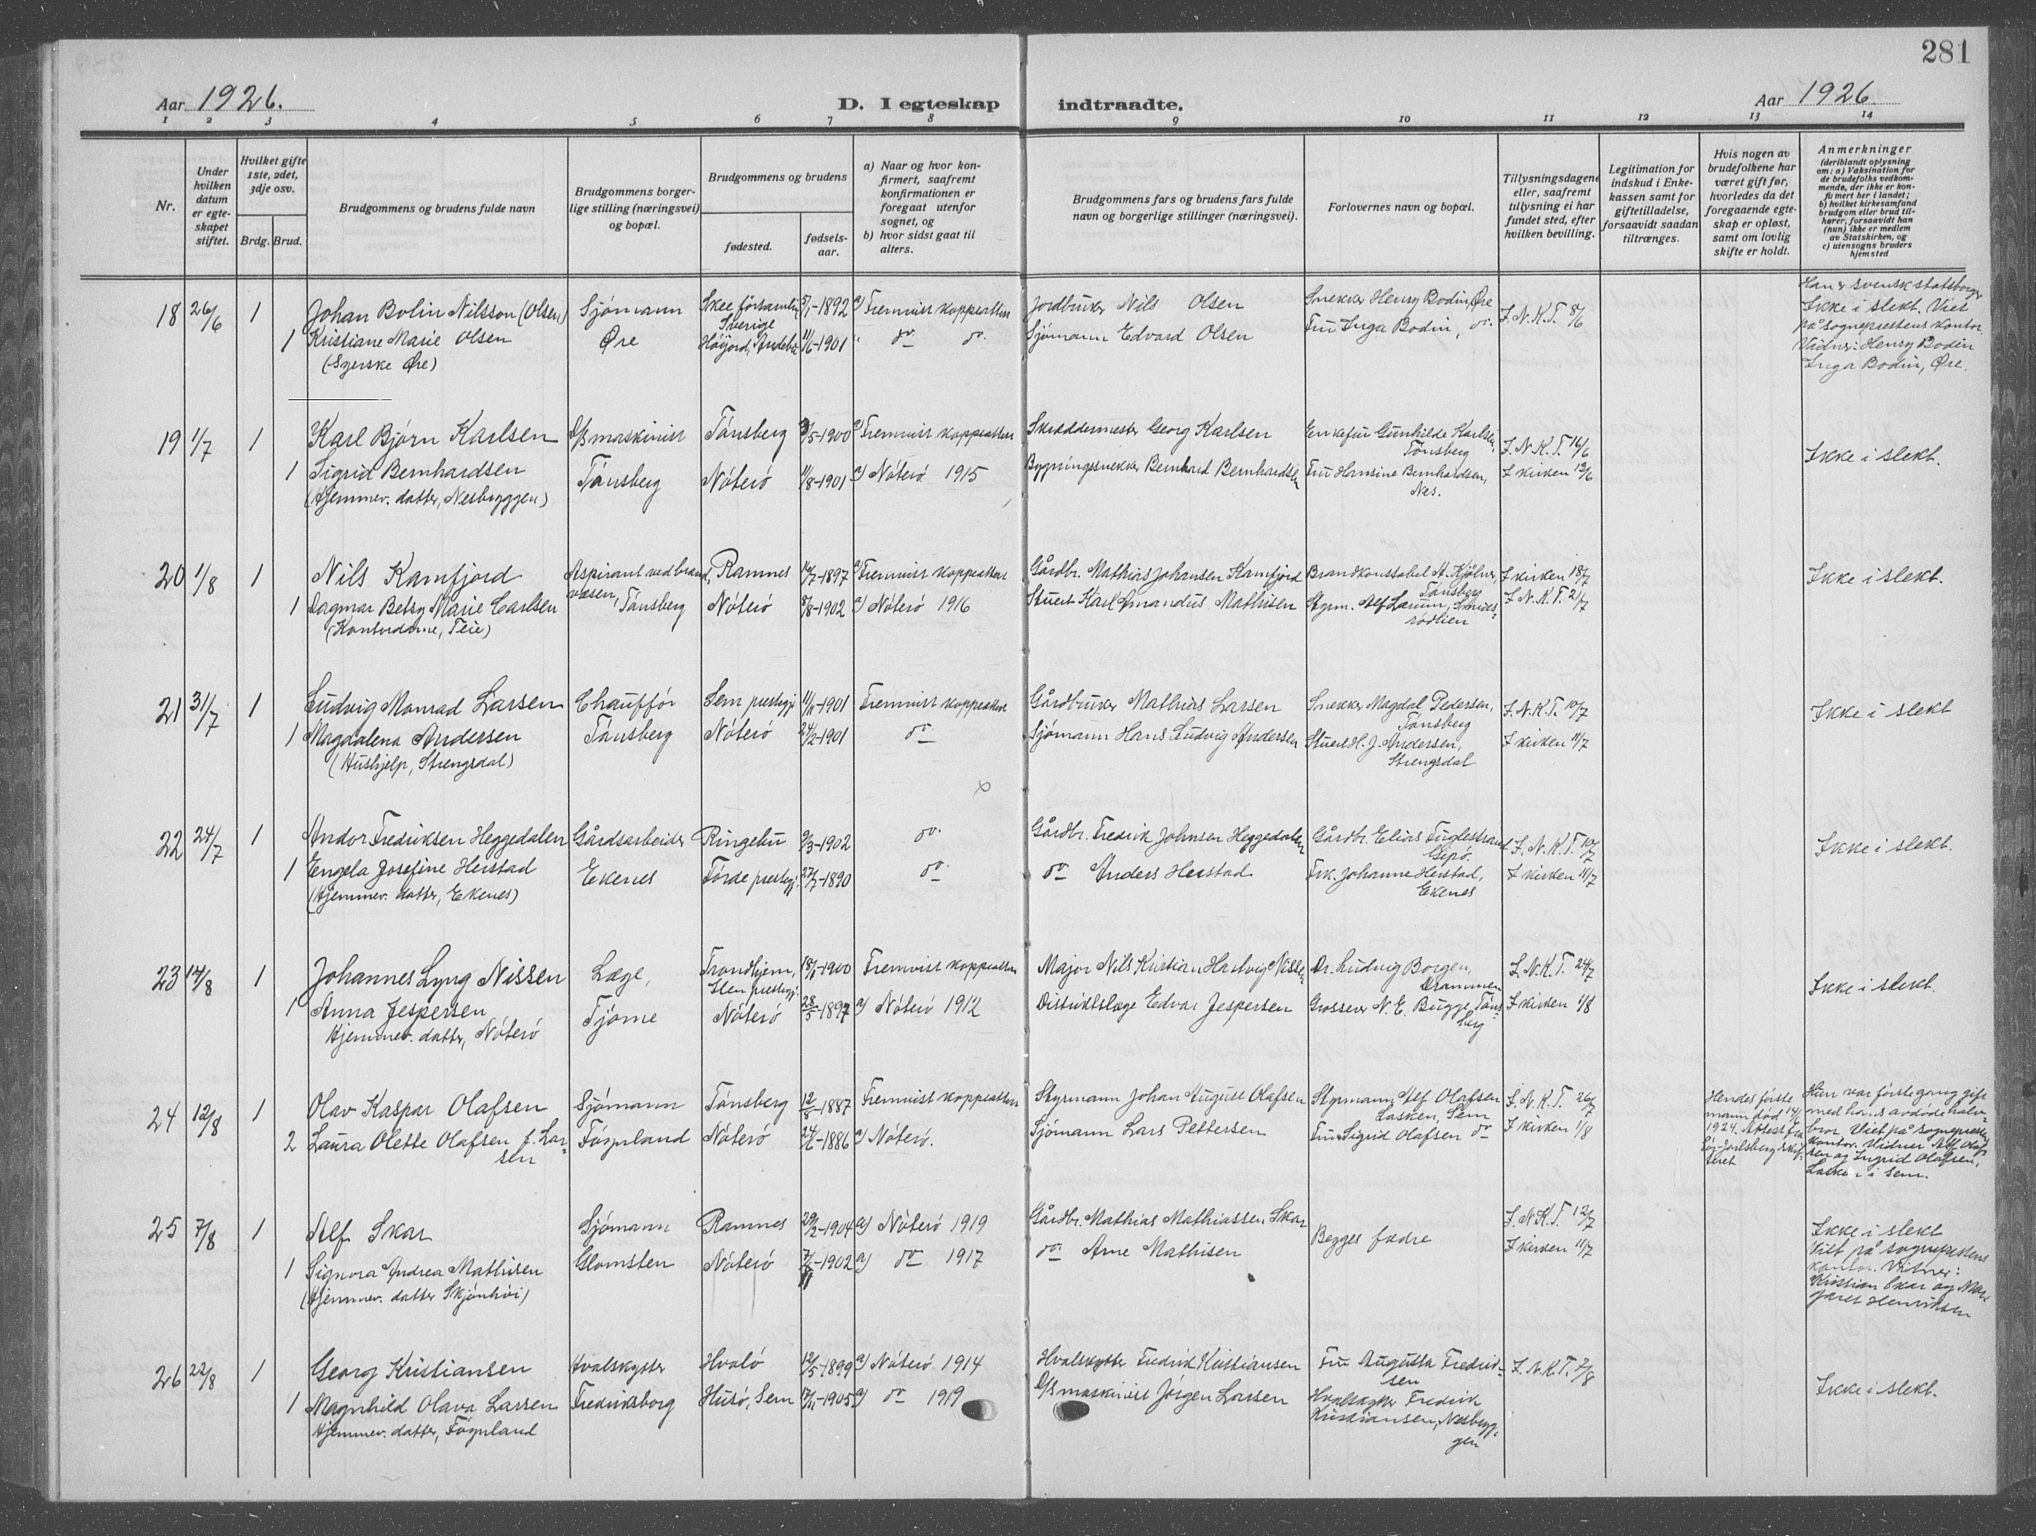 281
Aar 1926.
D. I egteskap indtraadte.
Aar 1926.
1 2 3 4 5 6 7 8 9 10 11 12 13 14
Nr.
Under hvilken datum er egteskapet stiftet.
Hvilket gifte 1ste, 2det, 3dje osv.
Brdg. Brud.
Brudgommens og brudens fulde navn
Brudgommens borgerlige stilling (næringsvei) og bopæl.
Brudgommens og brudens
fødested.
fødselsaar.
a) Naar og hvor konfirmert, saafremt konfirmationen er foregaat utenfor sognet, og
b) hvor sidst gaat til alters.
Brudgommens fars og brudens fars fulde navn og borgerlige stillinger (næringsvei).
Forlovernes navn og bopæl.
Tillysningsdagene eller, saafremt tillysning ei har fundet sted, efter hvilken bevilling.
Legitimation for indskud i Enkekassen samt for giftetilladelse, forsaavidt saadan tiltrænges.
Hvis nogen av brudefolkene har været gift før, hvorledes da det foregaaende egteskap er opløst, samt om lovlig skifte er holdt.
Anmerkninger
(deriblandt oplysning om: a) Vaksination for de brudefolks vedkommende, der ikke er konfirmert her i landet; b) hvilket kirkesamfund brudgom eller brud tilhører, forsaavidt han (hun) ikke er medlem av Statskirken, og c) utensogns bruders hjemsted
18 26/6 1 Johan Bolin Nilsson (Olsen) Sjømann Skee församling Sverige 5/1-1892 a) Fremvist koppeattest Jordbruker Nils Olsen Snekker Henry Bodin, Øre F.N.K.T. 8/6
1 Kristiane Marie Olsen Øre Høijord, Andebu 11/6-1901 do do. Sjømann Edvard Olsen Fru Inga Bodin, do.
(Syerske Øre)
Han er svensk statsborger
Ikke i slekt. Viet
på sogneprestens kontor
Vidner: Henry Bodin
Inga Bodin, Øre.
19 1/7 1 Karl Bjørn Karlsen D/S maskinist Tønsberg 3/5-1900 a) Fremvist koppeattest Skræddermester Georg Karlsen Enkefru Gunhilde Karlsen, Tønsberg F.N.K.T. 16/6
1 Sigrid Bernhardsen Tønsberg Nøterø 11/8-1901 a) Nøterø 1915 Bygningssnekker Bernhard Bernhardsen Fru Hansine Bernhardsen, Nes. I kirken 13/6
(Hjemmev. datter, Nesbryggen)
Ikke i slekt.
20 1/8 1 Nils Kamfjord Aspirant ved brandvæsen, Tønsberg Ramnes 14/7-1897 a) Fremvist koppeattest Gårdbr. Mathias Johansen Kamfjord Brandkonstabel A. Kjølner, Tønsberg I kirken 18/7
1 Dagmar Betsy Marie Carlsen Nøterø 8/8-1902 a) Nøterø 1916 Stuert Karl Amandus Mathisen Styrm. Alf Larum, Smidsrødlien F.N.K.T. 21/7
(Kontordame, Teie)
Ikke i slekt.
21 31/7 1 Ludvig Monrad Larsen Chauffør Sem prestegj. 11/11-1901 Fremvist koppeattest Gårdbruker Mathias Larsen Snekker Magdal Pedersen, Tønsberg F.N.K.T. 10/7
1 Magdalena Andersen Tønsberg Nøterø 24/2-1901 do Sjømann Hans Ludvig Andersen Stuert H. J. Andersen, Strengsdal I kirken 11/7
(Hushjelp, Strengsdal)
Ikke i slekt
22 24/7 1 Andor Fredriksen Heggedalen Gårdsarbeider Ringebu 9/3-1902 do. Gårdbr. Fredrik Johnsen Heggedalen Gårdbr. Elias Fuglestrand Gipø. F.N.K.T. 10/7
1 Engela Josefine Herstad Ekenes Førde prestegj. 27/7-1890 do do Anders Herstad Frk. Johanne Herstad, Ekenes I kirken 11/7
(Hjemmev. datter, Ekenes)
Ikke i slekt.
23 14/8 1 Johannes Lyng Nissen Læge, Trondhjem, Ilen prestegj. 18/1-1900 Fremvist koppeattest Major Nils Kristian Hartvig Nissen Dr. Ludvig Borgen, Drammen F.N.K.T. 24/7
1 Anna Jespersen Tjøme Nøterø 28/5-1897 a) Nøterø 1912 Distriktslæge Edvar Jespersen Grosserer N. E. Bugge, Tønsberg I kirken 1/8
Hjemmev. datter, Nøterø
Ikke i slekt.
24 12/8 1 Olav Kaspar Olafsen Sjømann Tønsberg 12/8-1887 Fremvist koppeattest Styrmann Johan August Olafsen Styrmann, Alf Olafsen Lasken, Sem F.N.K.T. 26/7
2 Laura Olette Olafsen f. Larsen Føynland Nøterø 24/6-1886 a) Nøterø. Sjømann Lars Pettersen Fru Sigrid Olafsen do I kirken 1/8
Hendes første
mann død 14/1
1924. Attest fra
Søj-Jarlsberg skifteret
Hun var første gang gift
med hans avdøde halvbror. Viet på sogneprestens
kontor. Vidner Alf Olafsen og Ingrid Olafsen,
Lasken i Sem.
25 7/8 1 Alf Skar Sjømann Ramnes 29/2-1904 a) Nøterø 1919 Gårdbr. Mathias Mathiassen Skar Begges fædre F.N.K.T. 12/7
1 Signora Andrea Mathisen Glomsten Nøterø 7/11-1902 a) do 1917 do. Arne Mathisen I kirken 11/7
(Hjemmev. datter Skjønhøi)
Ikke i slekt
Viet på sogneprestens
kontor. Vitner:
Kristian Skar og Margaret Henriksen
26 22/8 1 Georg Kristiansen Hvalskytter Hvalø 12/5-1899 a) Nøterø 1914 Hvalskytter Fredrik Kristiansen Fru Augusta Fredriksen F.N.K.T. 7/8
1 Magnhild Olava Larsen Fredriksborg Husø, Sem 17/11-1905 a) do 1919 D/S maskinist Jørgen Larsen Hvalskytter Fredrik Kristiansen, Nesbryggen
Hjemmev. datter, Føynland
Ikke i slekt.